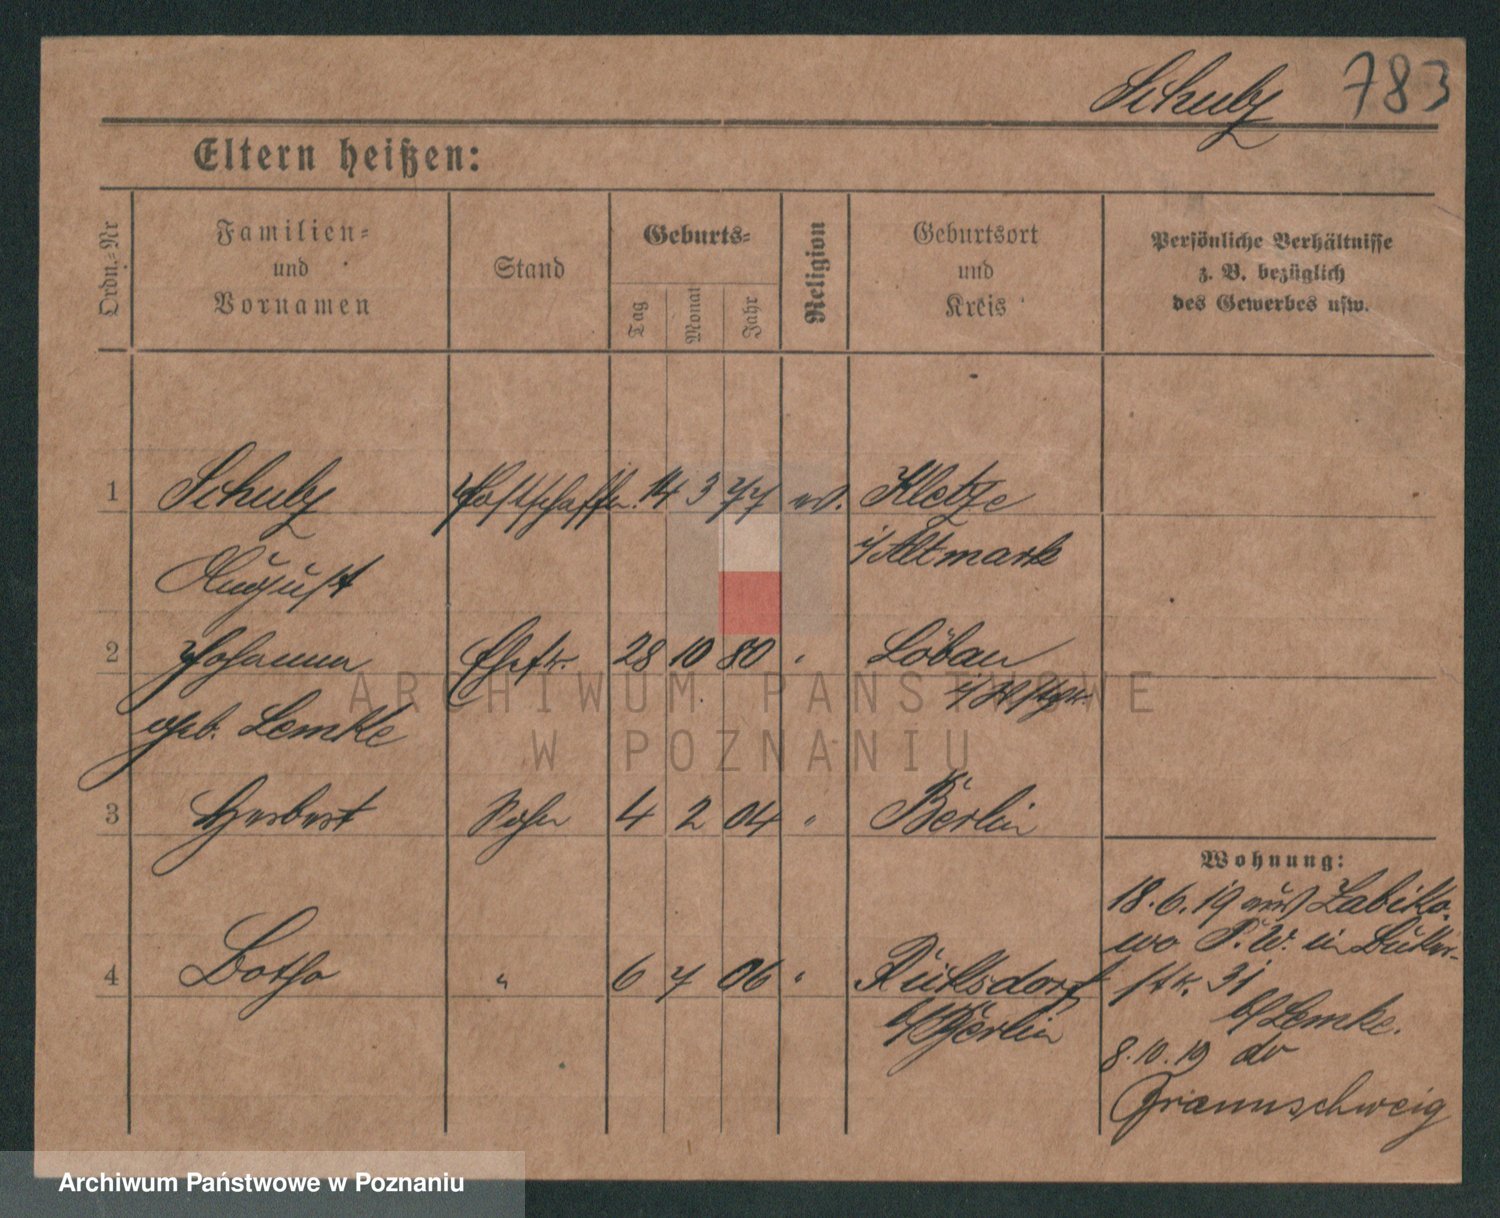 Schulz 783
Eltern heißen:
Ordn.-Nr
Familien-
und
Vornamen
Stand
Geburts-
Tag
Monat
Jahr
Religion
Geburtsort
und
Kreis
Persönliche Verhältnisse
z. B. bezüglich
des Gewerbes usw.
1 Schulz Postschaffn. 14 3 77 ev. Kletze
August i/Altmark
2 Johanna Ehefr. 28 10 80 " Löbau
geb. Lemke i/
3 Herbert Sohn 4 2 04 " Berlin
4 Botho " 6 7 06 " Rüdsdorf
b/Berlin
Wohnung:
18.6.19 aus Zabiko.
wo P.W. in
str. 31
b/Lemke.
8.10.19
Braunschweig
ARCHIWUM PAŃSTWOWE
W POZNANIU
Archiwum Państwowe w Poznaniu